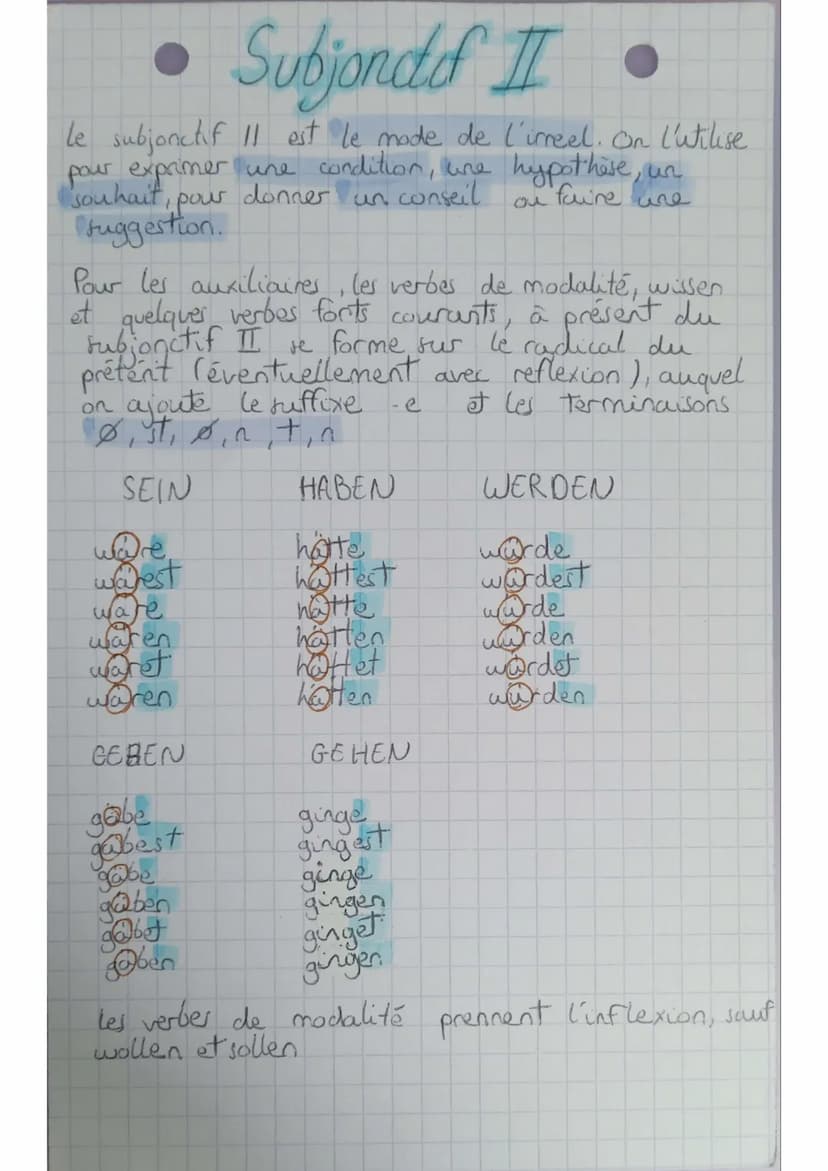 Subjonctif II
Le subjonctif II est le mode de l'irreel. On l'utilise
pour exprimer une condition, une hypothèse, un
souhait, pour donner un conseil ou faire une
suggestion.
Pour les auxiliaires, les verbes de modalité, wissen
et quelques verbes forts courants, à présent du
subjonctif II se forme sur le radical du
prétérit (éventuellement avec reflexion), auquel
on ajoute le suffixe -e et les terminaisons
ø, st, ø, n, t, n
SEIN HABEN WERDEN
wäre hätte würde
wärest hättest würdest
wäre hätte würde
wären hätten würden
wäret hättet würdet
wären hätten würden
GEBEN GEHEN
gäbe ginge
gäbest gingest
gäbe ginge
gäben gingen
gäbet ginget
gäben gingen
Les verbes de modalité prennent l'inflexion, sauf
wollen et sollen